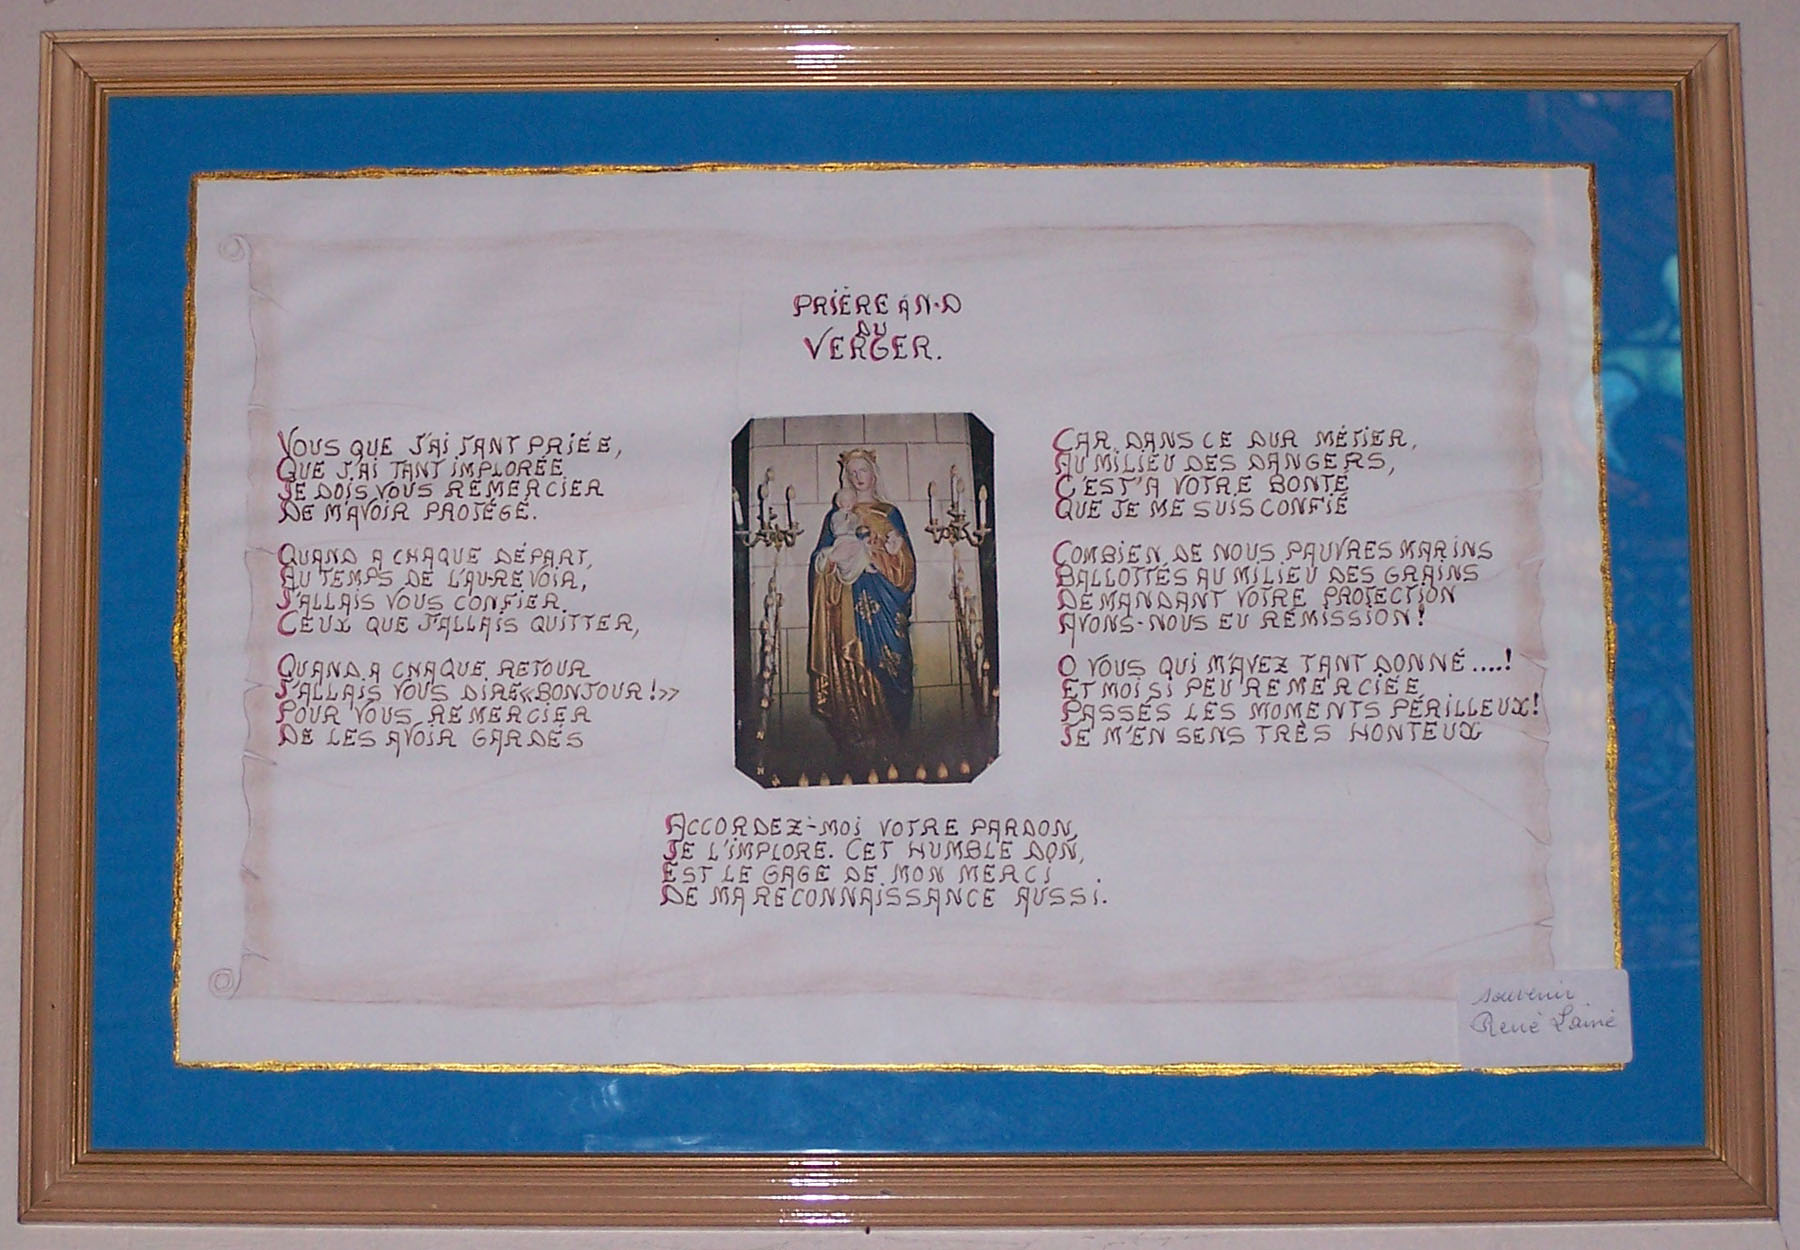 PRIÈRE À N-D
DU
VERGER.
VOUS QUE J'AI TANT PRIÉE,
QUE J'AI TANT IMPLORÉE
JE DOIS VOUS REMERCIER
DE M'AVOIR PROTÉGÉ.
QUAND A CHAQUE DÉPART,
AU TEMPS DE L'AU-REVOIR,
J'ALLAIS VOUS CONFIER
CEUX QUE J'ALLAIS QUITTER,
QUAND A CHAQUE RETOUR
J'ALLAIS VOUS DIRE «BONJOUR!»
POUR VOUS REMERCIER
DE LES AVOIR GARDÉS
CAR DANS CE DUR MÉTIER,
AU MILIEU DES DANGERS,
C'EST'A VOTRE BONTÉ
QUE JE ME SUIS CONFIÉ
COMBIEN DE NOUS PAUVRES MARINS
BALLOTTÉS AU MILIEU DES GRAINS
DEMANDANT VOTRE PROTECTION
AVONS-NOUS EU RÉMISSION!
O VOUS QUI M'AVEZ TANT DONNÉ....!
ET MOI SI PEU REMERCIÉE
PASSÉS LES MOMENTS PÉRILLEUX!
JE M'EN SENS TRÈS HONTEUX
ACCORDEZ-MOI VOTRE PARDON,
JE L'IMPLORE. CET HUMBLE DON,
EST LE GAGE DE MON MERCI
DE MA RECONNAISSANCE AUSSI.
souvenir
René Lainé